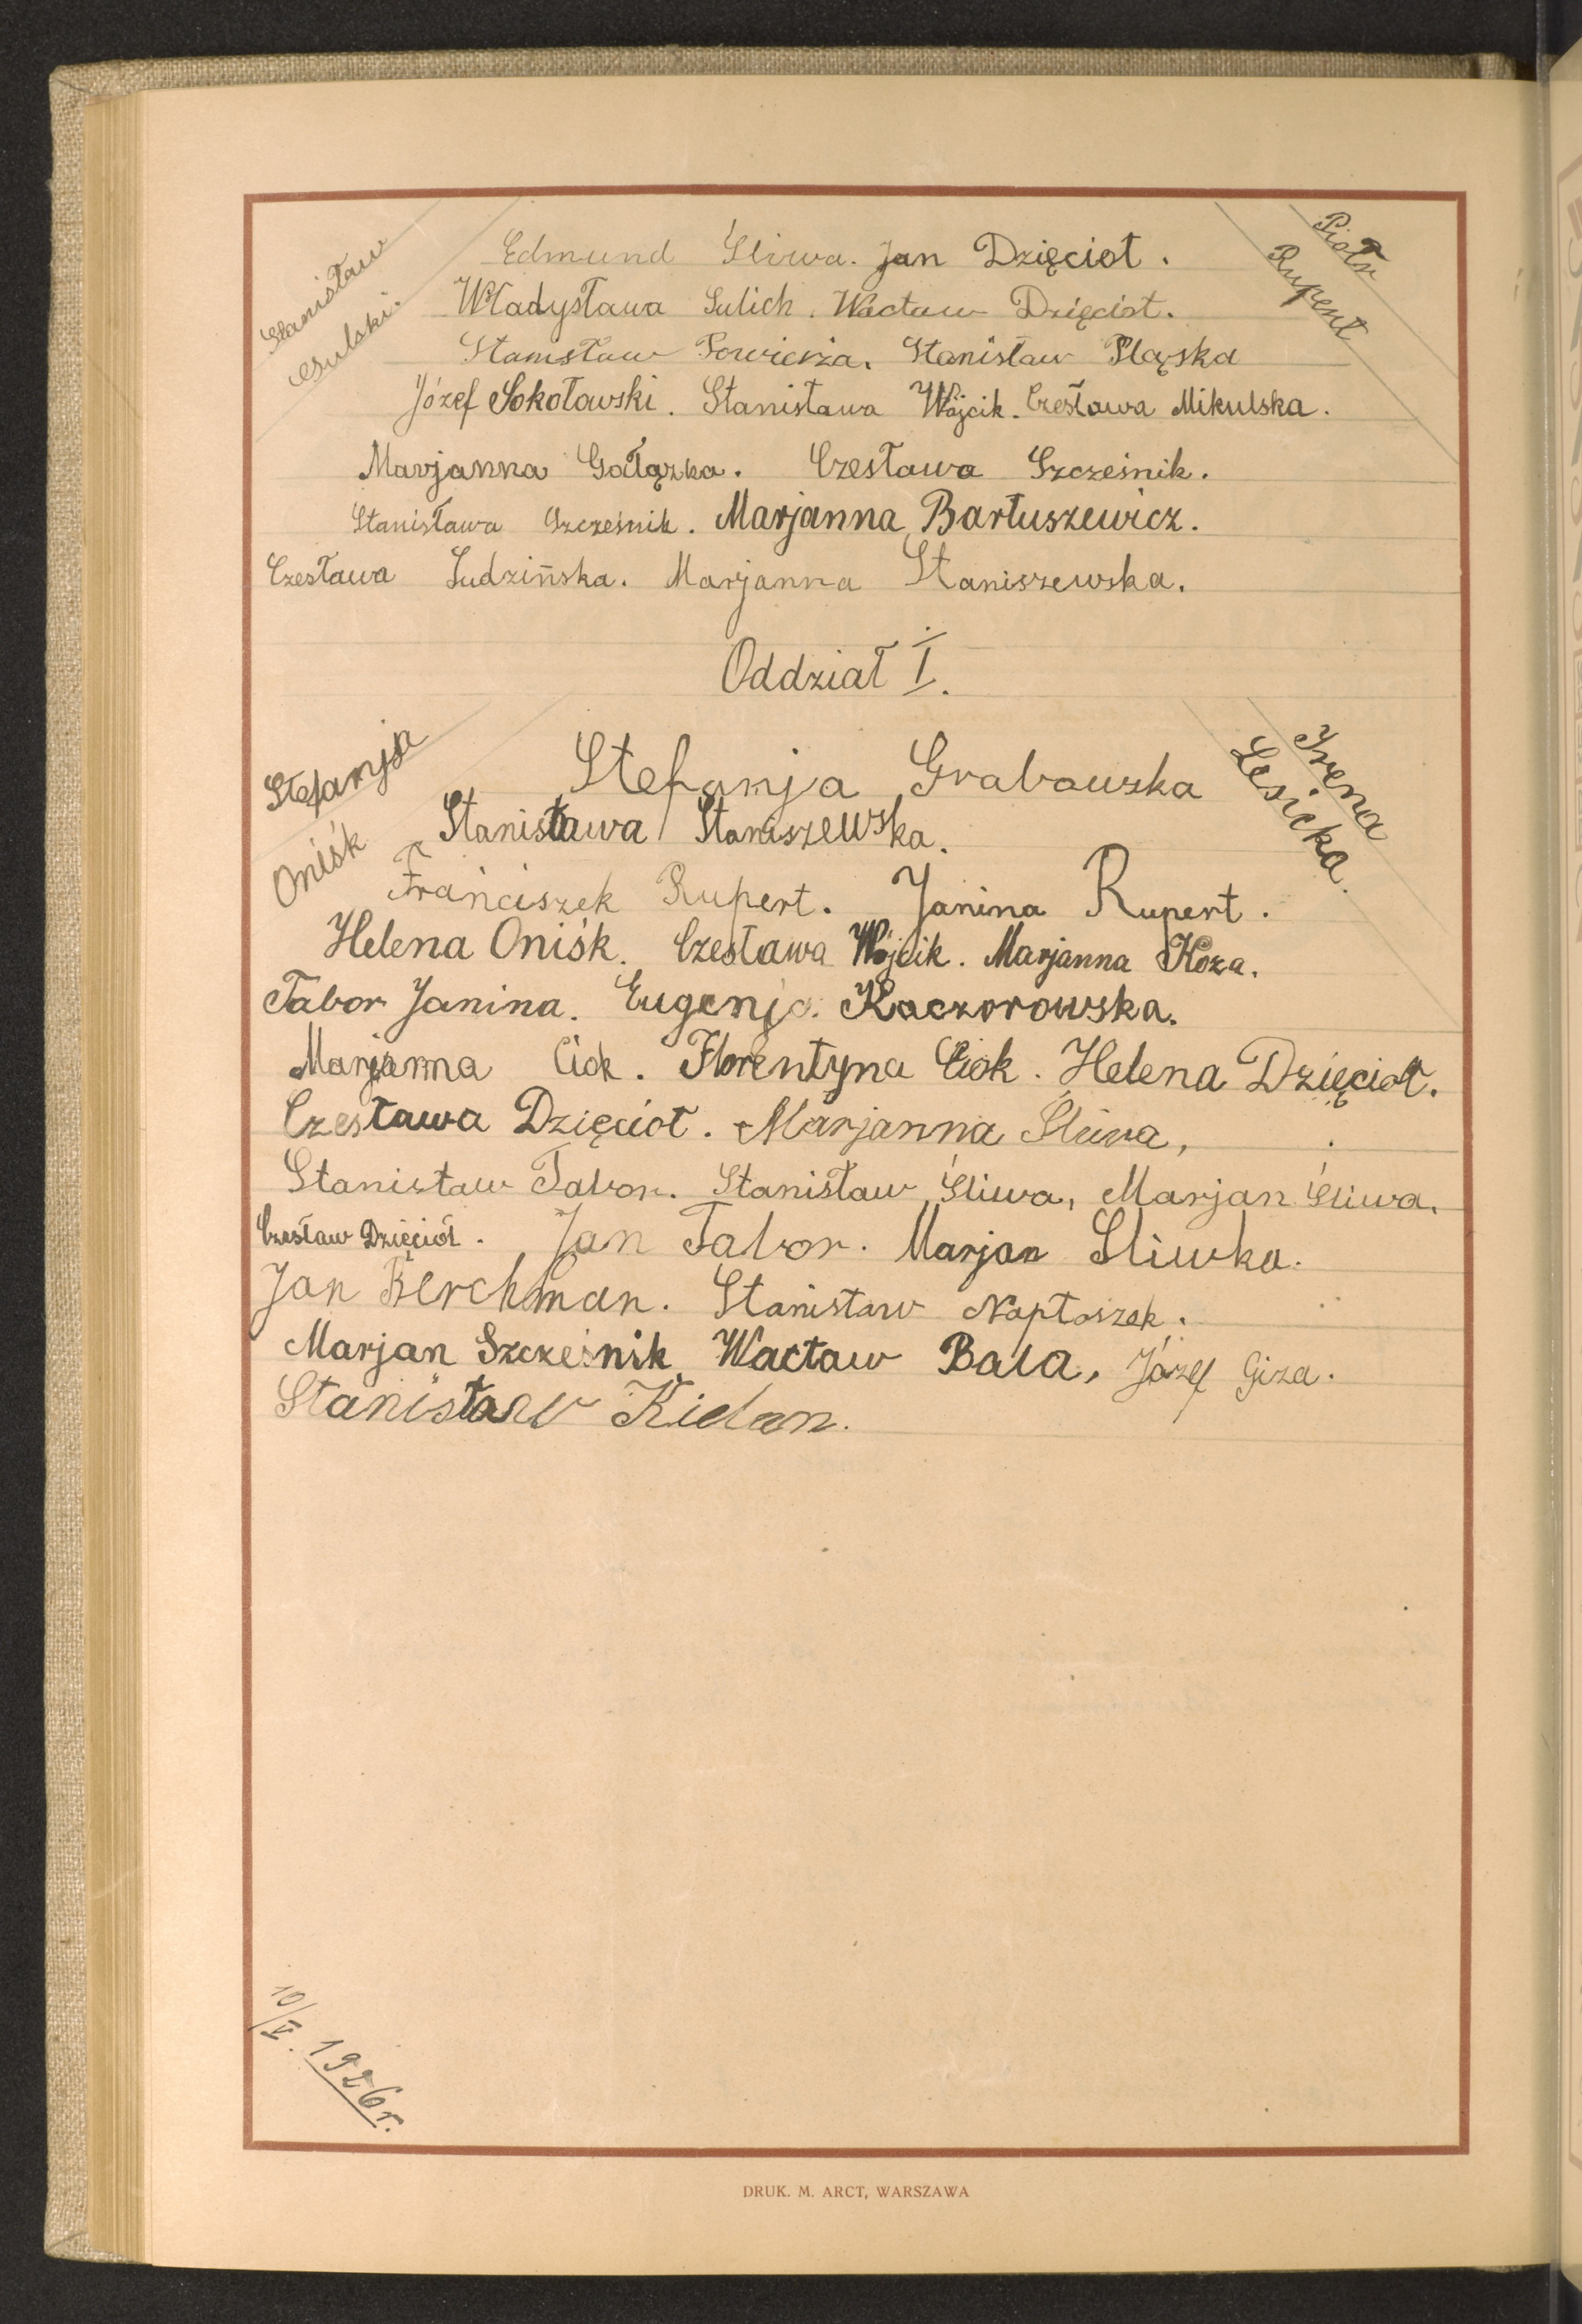 Stanisław
Gulski.
Piotr
Rupert
Edmund Śliwa. Jan Dzięcioł.
Władysława Sulich. Wacław Dzięcioł.
Stanisław Powierża. Stanisław Pląska
Józef Sokołowski. Stanisława Wójcik. Czesława Mikulska.
Marjanna Gałązka. Czesława Szcześnik.
Stanisława Szcześnik. Marjanna Bartuszewicz.
Czesława Ludzińska. Marjanna Staniszewska.
Oddział I.
Stefanja
Oniśk
Irena
Lesicka.
Stefanja Grabowska
Stanisława Staniszewska.
Franciszek Rupert. Janina Rupert.
Helena Oniśk. Czesława Wójcik. Marjanna Koza.
Tabor Janina. Eugenja Kaczorowska.
Marjanna Ciok. Florentyna Ciok. Helena Dzięcioł.
Czesława Dzięcioł. Marjanna Śliwa,
Stanisław Tabor. Stanisław Śliwa, Marjan Śliwa.
Czesław Dzięcioł. Jan Tabor. Marjan Śliwka.
Jan Berchman. Stanisław Naptoszek.
Marjan Szcześnik Wacław Bala, Józef Giza.
Stanisław Kielan.
10/V. 1926r.
DRUK. M. ARCT, WARSZAWA